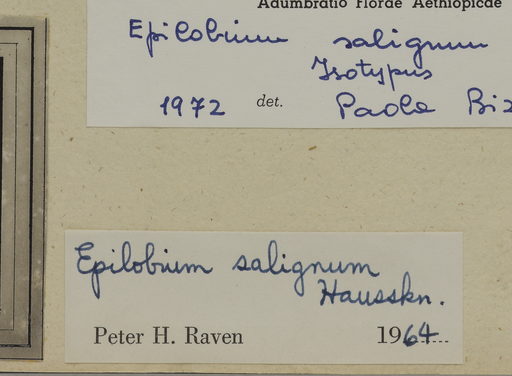 Adumbratio Florae Aethiopicae
Epilobium salignum
Isotypus
1972 det. Paola
Epilobium salignum
Hausskn.
Peter H. Raven 1964